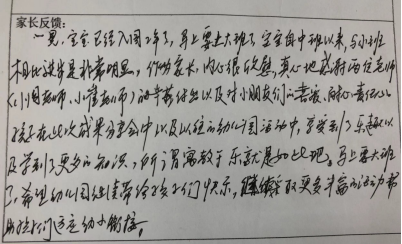 家长反馈：
一晃，宝宝已经入园2年了，马上要上大班了，宝宝自中班以来，与小班
相比进步是非常明显，作为家长，内心很欣慰，真心地感谢两位老师
（小周老师、小崔老师）的辛勤付出以及对小朋友们的喜爱、耐心、责任心
孩子在此次成果分享会中以及以往的幼儿园活动中，享受到了乐趣以
及学到了更多的知识，所谓寓教于乐就是如此吧。马上要大班
了，希望幼儿园继续带给孩子们快乐，继续采取更多丰富的活动帮
助孩子们适应幼小衔接。